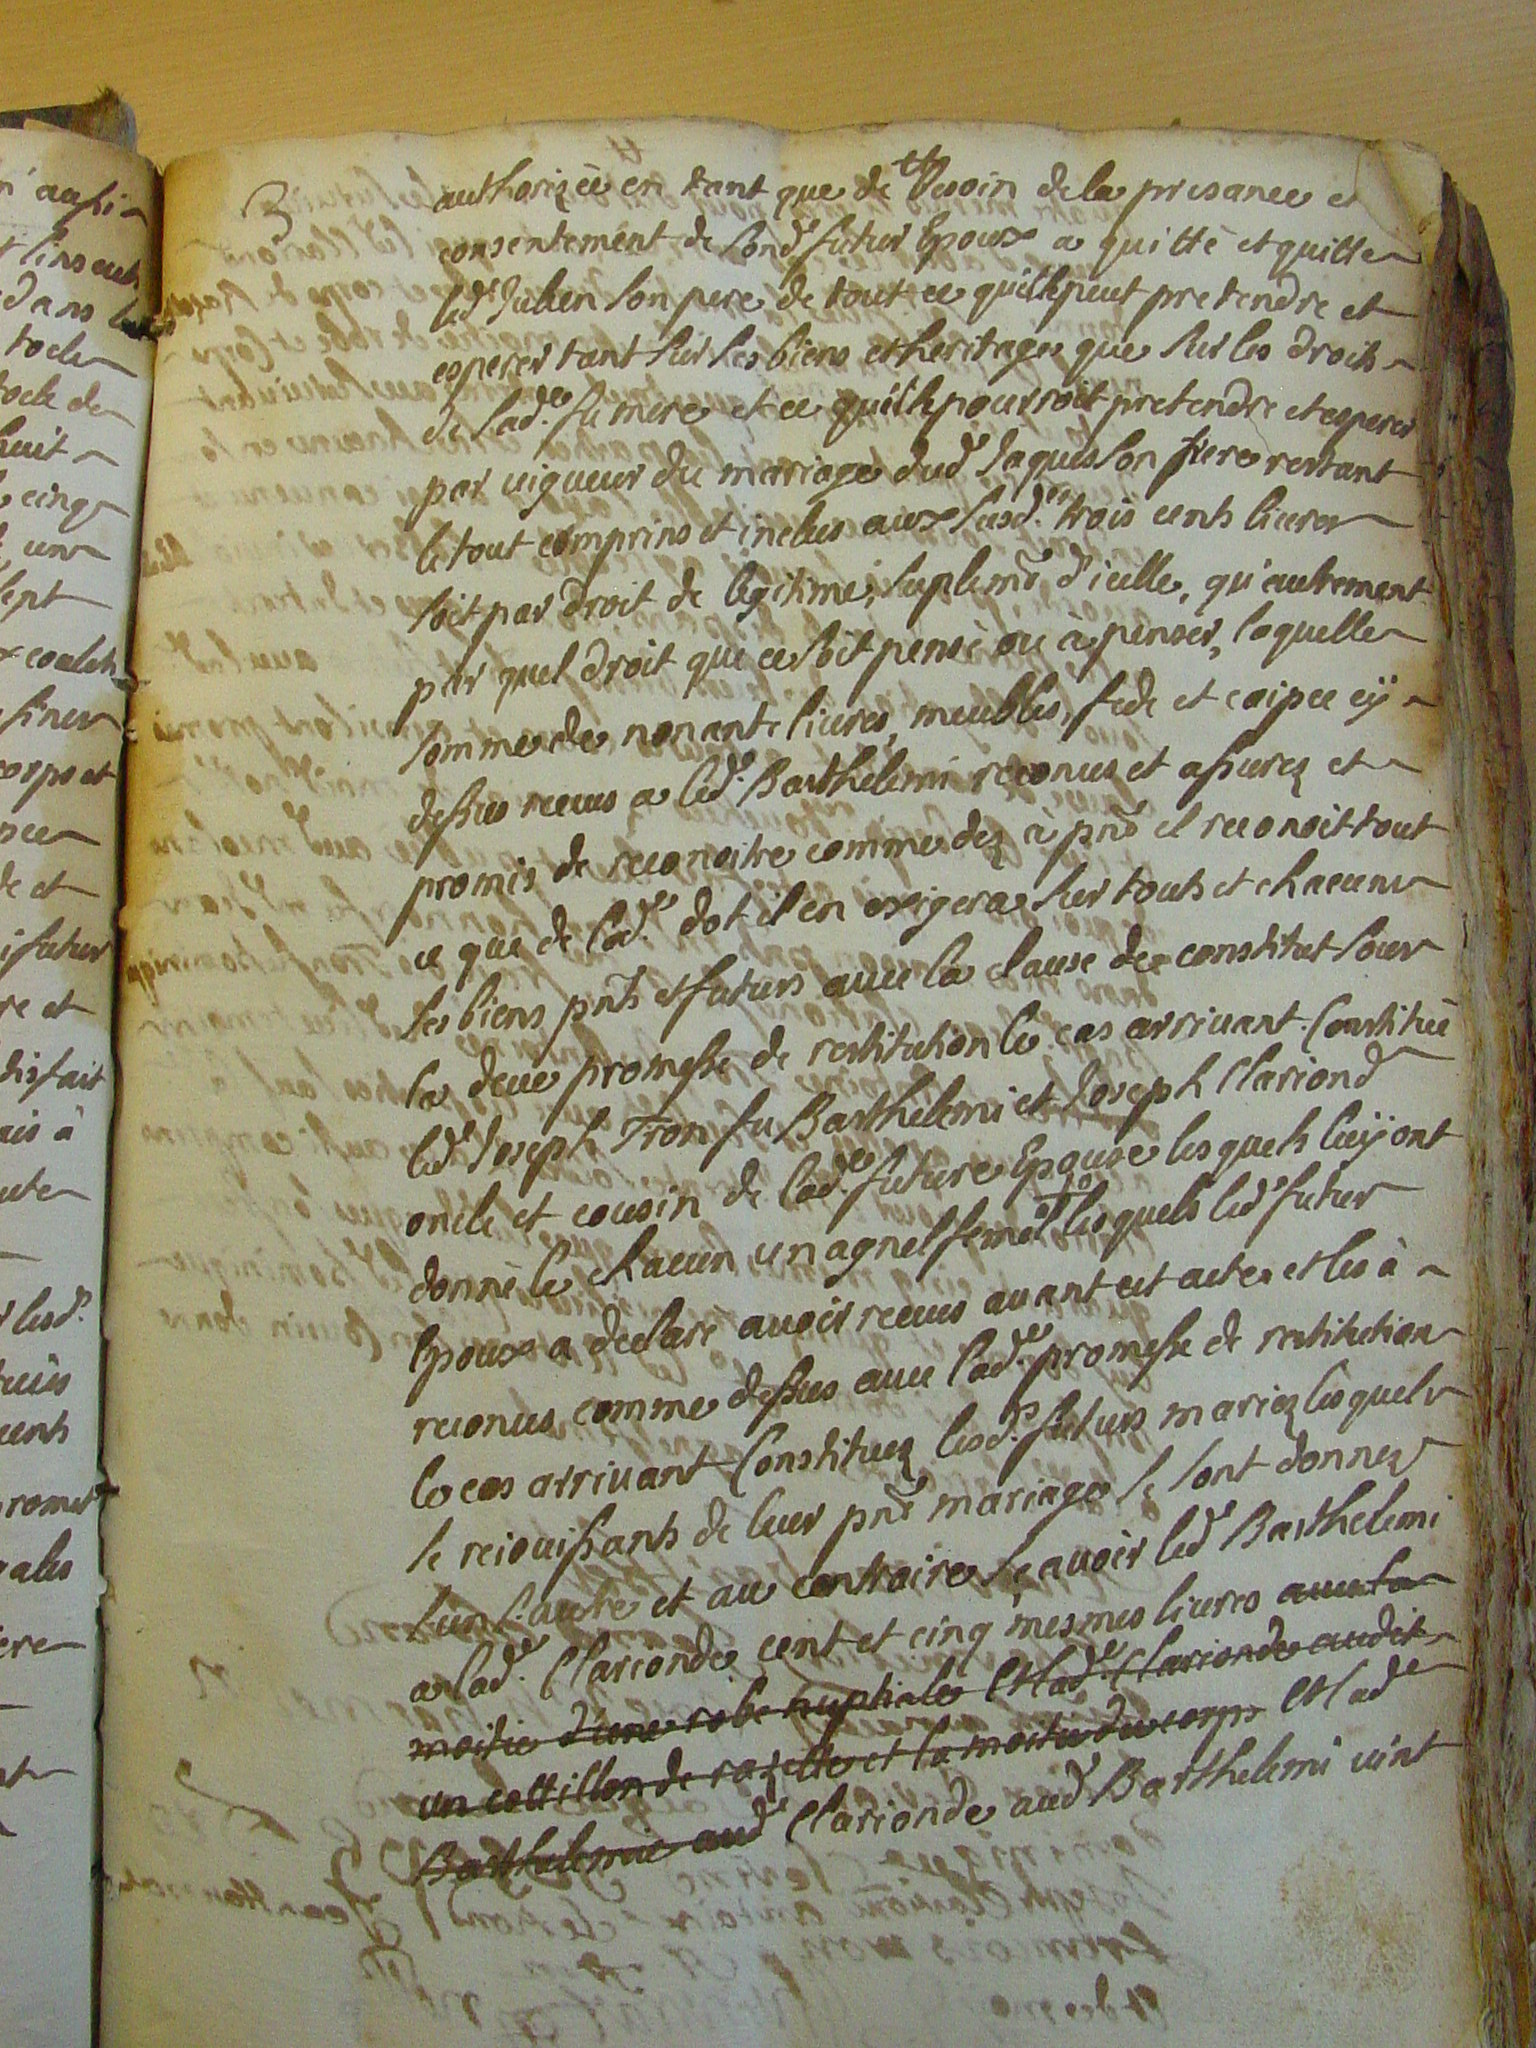 3
authorizée en tant que de besoin de la presance et
consentement de sond. futur Epoux a quitté et quitte
led. Julien son pere de tout ce qu'ille peut pretendre et
esperer tant sur ses biens et heritages que sur les droits
de lad.e fu mere et ce qu'ille pourroit pretendre et esperer
par vigueur du mariage dud. Jaques son frere restant
le tout comprins et inclus aux susd.es trois cents livres
soit par droit de legitime, suplem.t d'icelle, qu'autrement
par quel droit que ce soit pensé ou à penser, laquelle
somme de nonante livres, meubles, fede et caipce cy
dessus receus a led. Barthelemi reconus et assurez et
promis de reconoitre comme dez à pnt il reconoit tout
ce que de lad.e dot il en exigera sur touts et chacuns
ses biens pnts et futurs avec la clause de constitut sous
la deue promesse de restitution le cas arrivant. Constitué
led. Joseph Tron fu Barthelemi et Joseph Clariond
oncle et cousin de lad.e future Epouse lesquels luy ont
donné le chacun un agnel femel lesquels led. futur
Epoux a declaré avoir receus avant cet acte et les à
reconus comme dessus avec lad.e promesse de restitution
le cas arrivant Constituez lesd.s futurs mariez lesquels
se reiouissants de leur pnt mariage se sont donnez
l'un l'autre et au contraire sçavoir led. Barthelemi
a lad.e Clarionde cent et cinq mesmes livres avec la
moitie d'une robe nuptiale Et lad.e Clarionde audit
un cottillon de razette et la moitie du corps Et lad.e
Barthelemie aud. Clarionde aud. Barthelemi vint